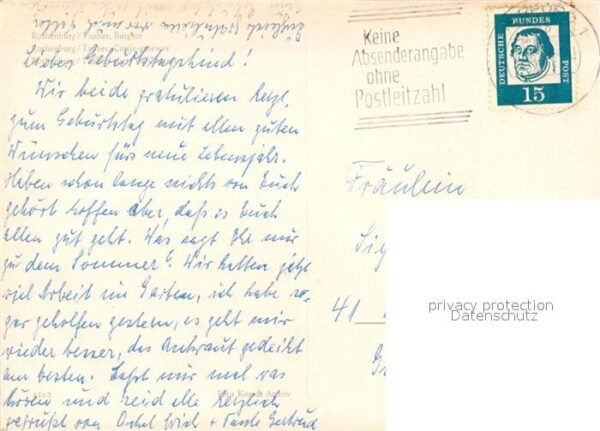 Rothenburg / Tauber, Burgtor
Rothenburg / Tauber, Castle-
Liebes Geburtstagskind!
Wir beide gratulieren herzl.
zum Geburtstag mit allen guten
Wünschen fürs neue Lebensjahr.
Haben schon lange nichts von Euch
gehört hoffen aber, daß es Euch
allen gut geht. Was sagt Ihr nur
zu dem Sommer? Wir hatten jetzt
viel Arbeit im Garten, ich habe so-
gar geholfen gestern, es geht mir
wieder besser, das Unkraut gedeiht
am besten. Laßt nur mal was
hören und seid alle herzlich
gegrüßt von Onkel Erich + Tante Gertrud
Foto Korndt Archiv
Keine
Absenderangabe
ohne
Postleitzahl
DEUTSCHE BUNDES POST
15
Fräulein
41
privacy protection
Datenschutz